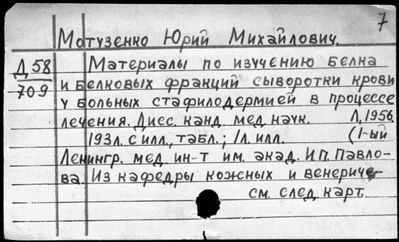 7
Мотузенко Юрий Михайлович.
Д 58
709
Материалы по изучению белка
и белковых фракций сыворотки крови
у больных стафилодермией в процессе
лечения. Дисс. канд. мед. наук. Л, 1956.
193л. с илл., табл.; 1л. илл. (1-ый
Ленингр. мед. ин-т им. акад. И.П. Павло-
ва. Из кафедры кожных и венериче-
см. след. карт.